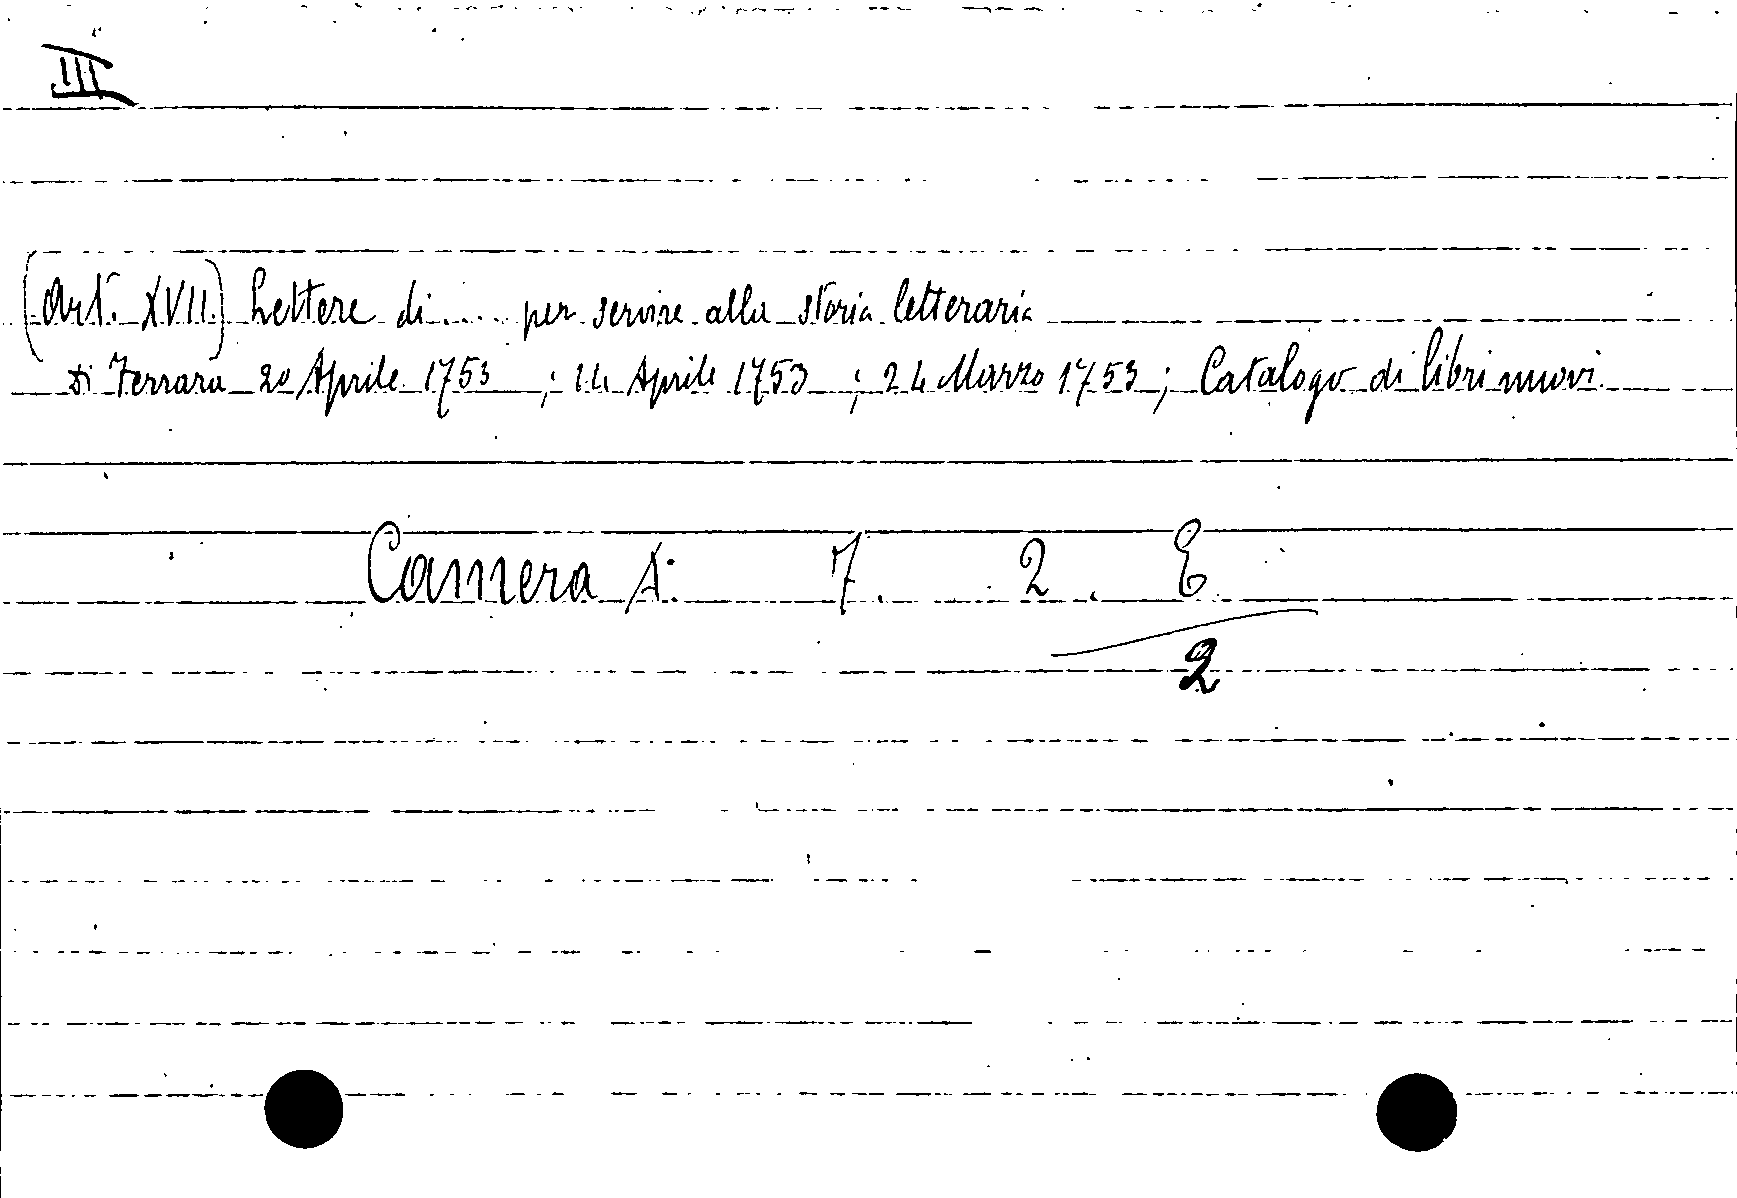 III
(Art. XVII) Lettere di .... per servire alla storia letteraria
Di Ferrara 20 Aprile 1753 ; 14 Aprile 1753 ; 24 Marzo 1753 ; Catalogo di libri nuovi.
Camera A: 7. 2. E
2